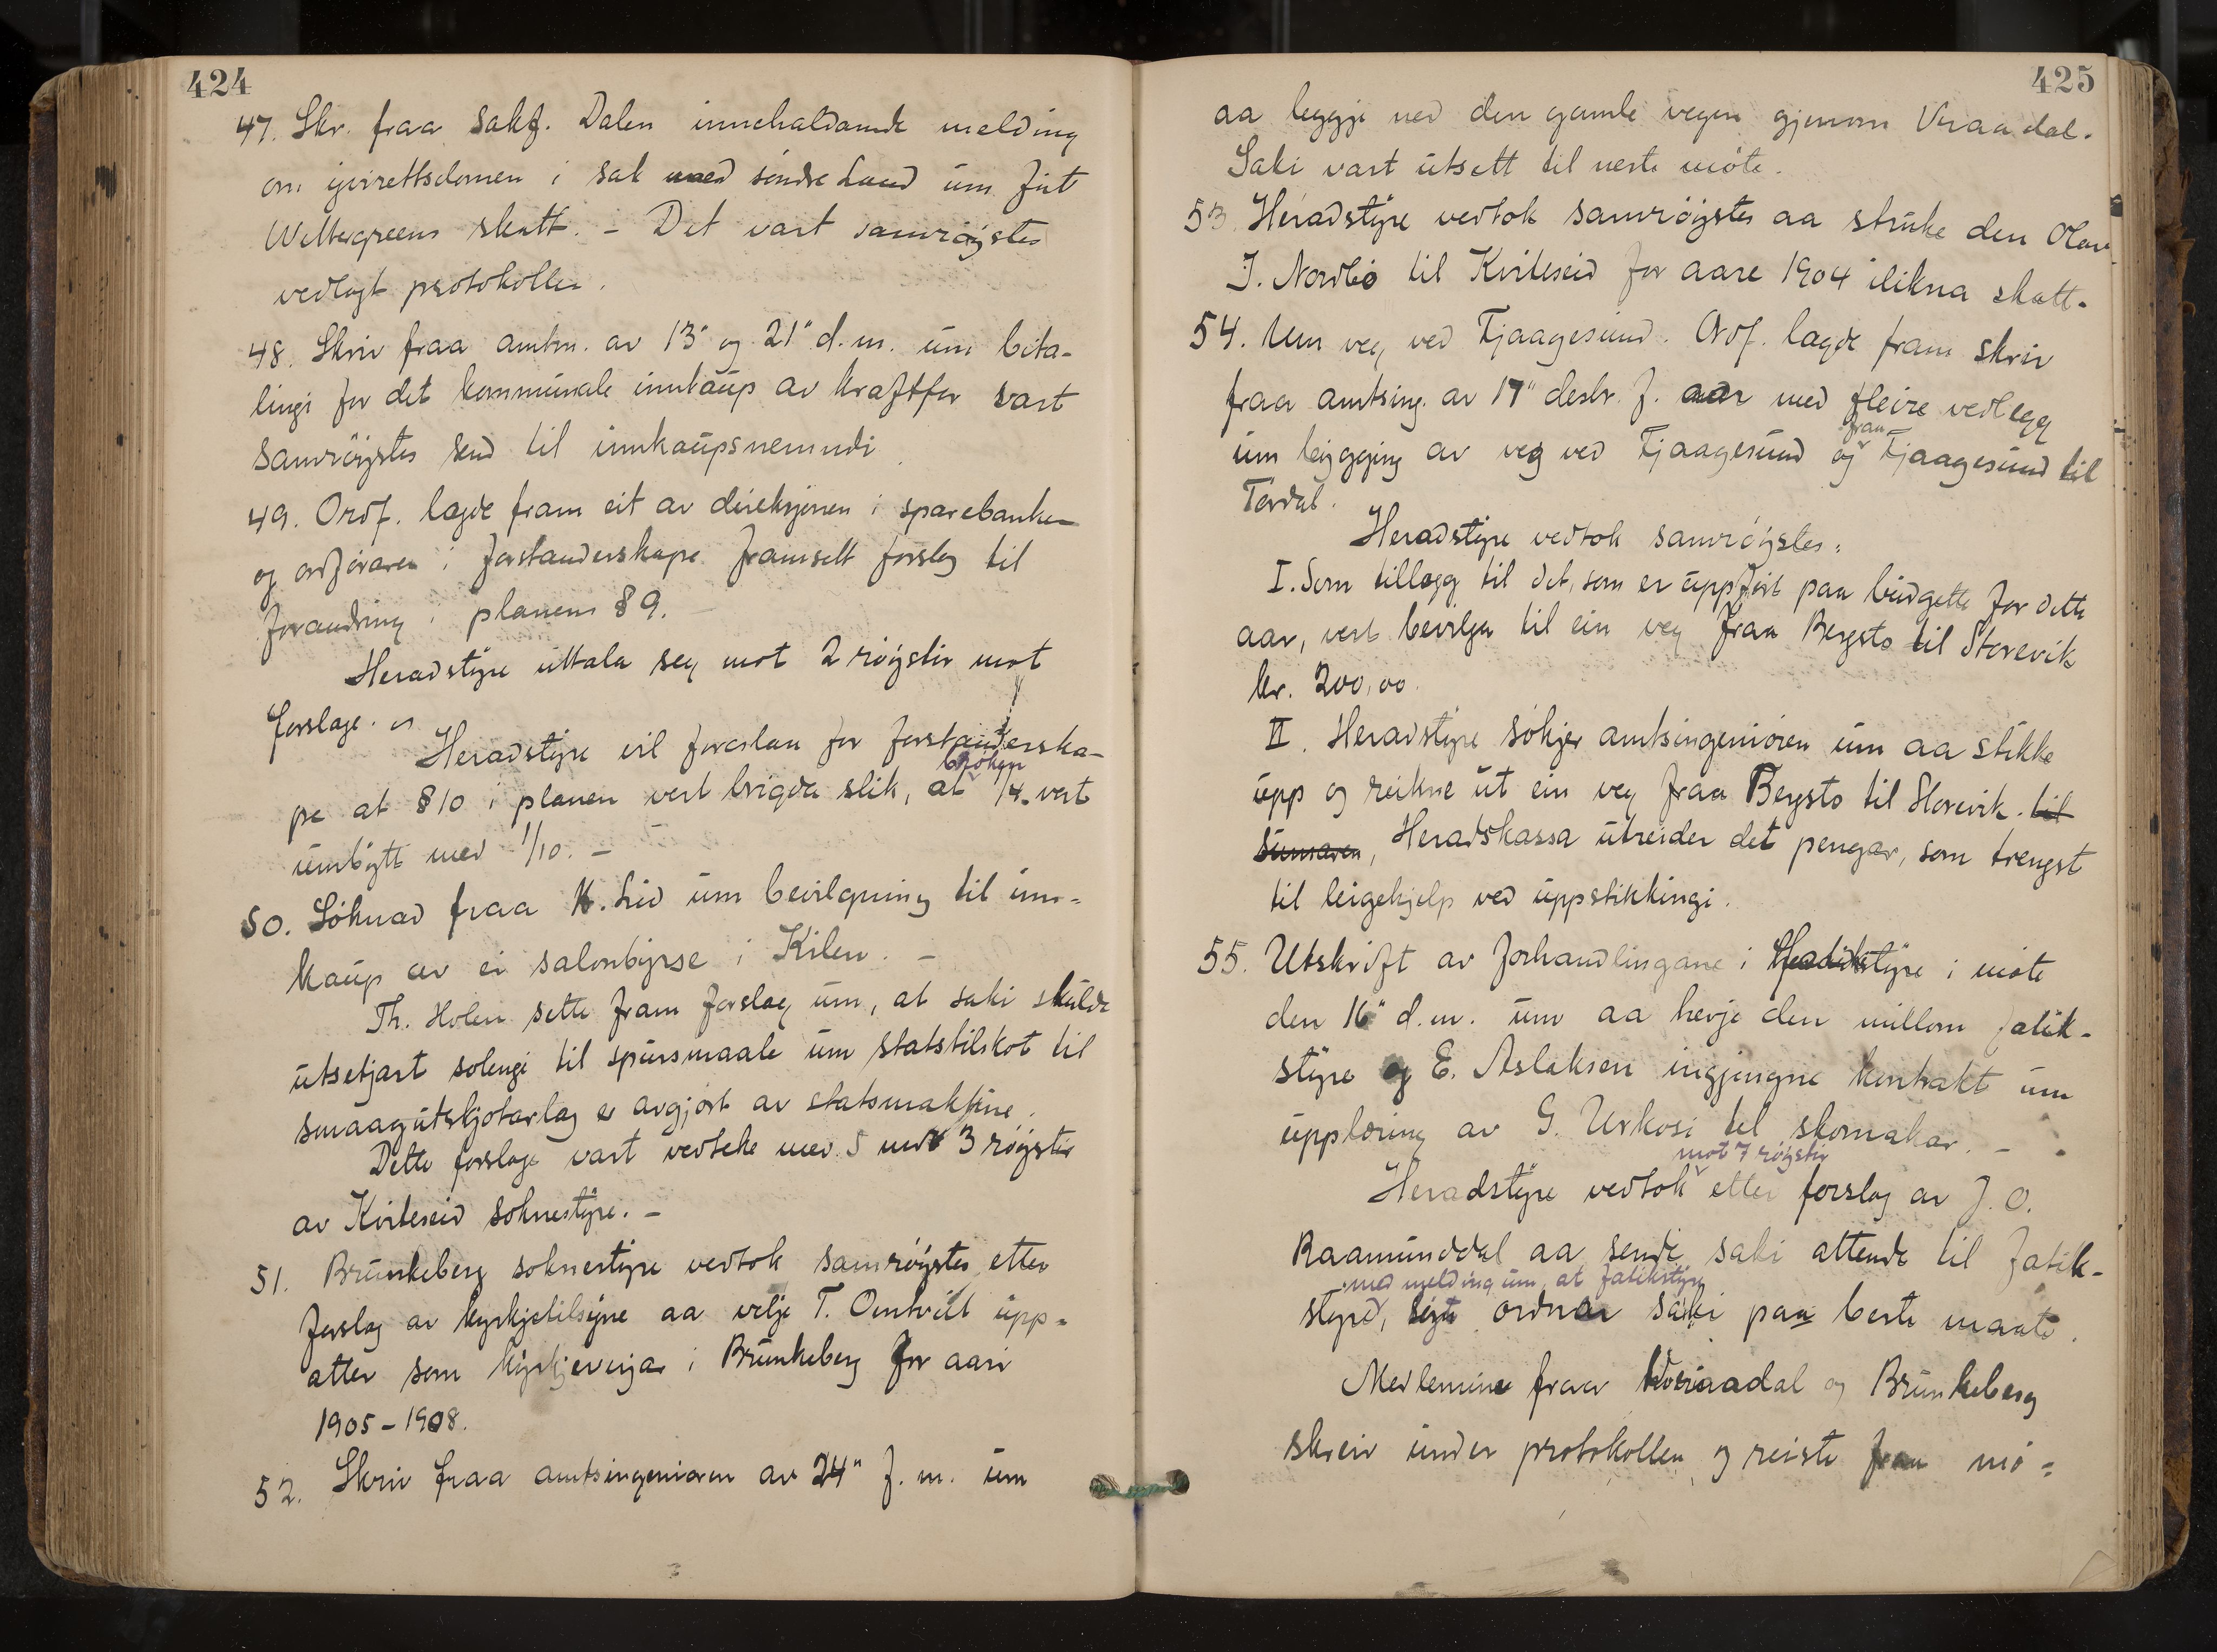 424
47. Skr. fraa Sakf. Dalen innehaldande melding
om yvirettsdomen i sak med søndre Land um fut
Wettergreens skatt. – Det vart samrøystes
vedlagt protokollen.
48. Skriv fraa amtm. av 13" og 21" d. m. um beta-
lingi for det kommunale innkaup av kraftfor vart
samrøystes send til innkaupsnemndi.
49. Ordf. lagde fram eit av direksjonen i sparebanken
og ordføraren i forstanderskape framsett forslag til
forandring i planens § 9.
Heradstyre uttala seg mot 2 røyster mot
forslage.
Heradstyre vil foreslaa for forstanderska-
pe at § 10 i planen vert brigda slik, at brøken 1/4 vert
umbytt med 1/10. –
50. Søknad fraa K. Lid um bevilgning til inn-
kaup av ei salonbyrse i Kilen. –
Th. Holen sette fram forslag um, at saki skulde
utsetjast solengi til spursmaale um statstilskot til
smaagutskjotarlag er avgjort av statsmaktine.
Dette forslage vart vedteke med 5 mot 3 røyster
av Kviteseid soknestyre. –
51. Brunkeberg soknestyre vedtok samrøystes etter
forslag av kyrkjetilsyne aa velje T. Omtvett upp-
atter som kyrkjeverjar i Brunkeberg for aari
1905–1908.
52. Skriv fraa amtsingeniøren av 24" f. m. um
425
aa leggje ned den gamle vegen gjenom Vraadal.
Saki vart utsett til neste møte.
53. Heradstyre vedtok samrøystes aa struke den Olav
J. Nordbø til Kviteseid for aare 1904 ilikna skatt.
54. Um veg ved Fjaagesund. Ordf. lagde fram skriv
fraa amtsing. av 17" desbr. f. aar med fleire vedlegg
um leggjing av veg ved Fjaagesund og fraa Fjaagesund til
Tørdal.
Heradstyre vedtok samrøystes:
I. Som tillegg til det, som er uppført paa budgette for dette
aar, vert bevilga til ein veg fraa Bergstø til Storevik
kr. 200,00.
II. Heradstyre søkjer amtsingeniøren um aa stikke
upp og reikne ut ein veg fraa Bergstø til Storevik. til
sumaren, Heradskassa utreider det pengar, som trengst
til leigehjelp ved uppstikkingi.
55. Utskrift av forhandlingane i fatikstyre i møte
den 16" d. m. um aa hevje den millom fatik-
styre og E. Aslaksen inngjengne kontrakt um
upplæring av G. Urkosi til skomakar. –
Heradstyre vedtok mot 7 røyster etter forslag av J. O.
Raamunddal aa sende saki attende til fatik-
styre, med melding um, at fatikstyre ordnar saki paa beste maate.
Medlemine fraa Vraadal og Brunkeberg
skreiv under protokollen og reiste fraa mø-